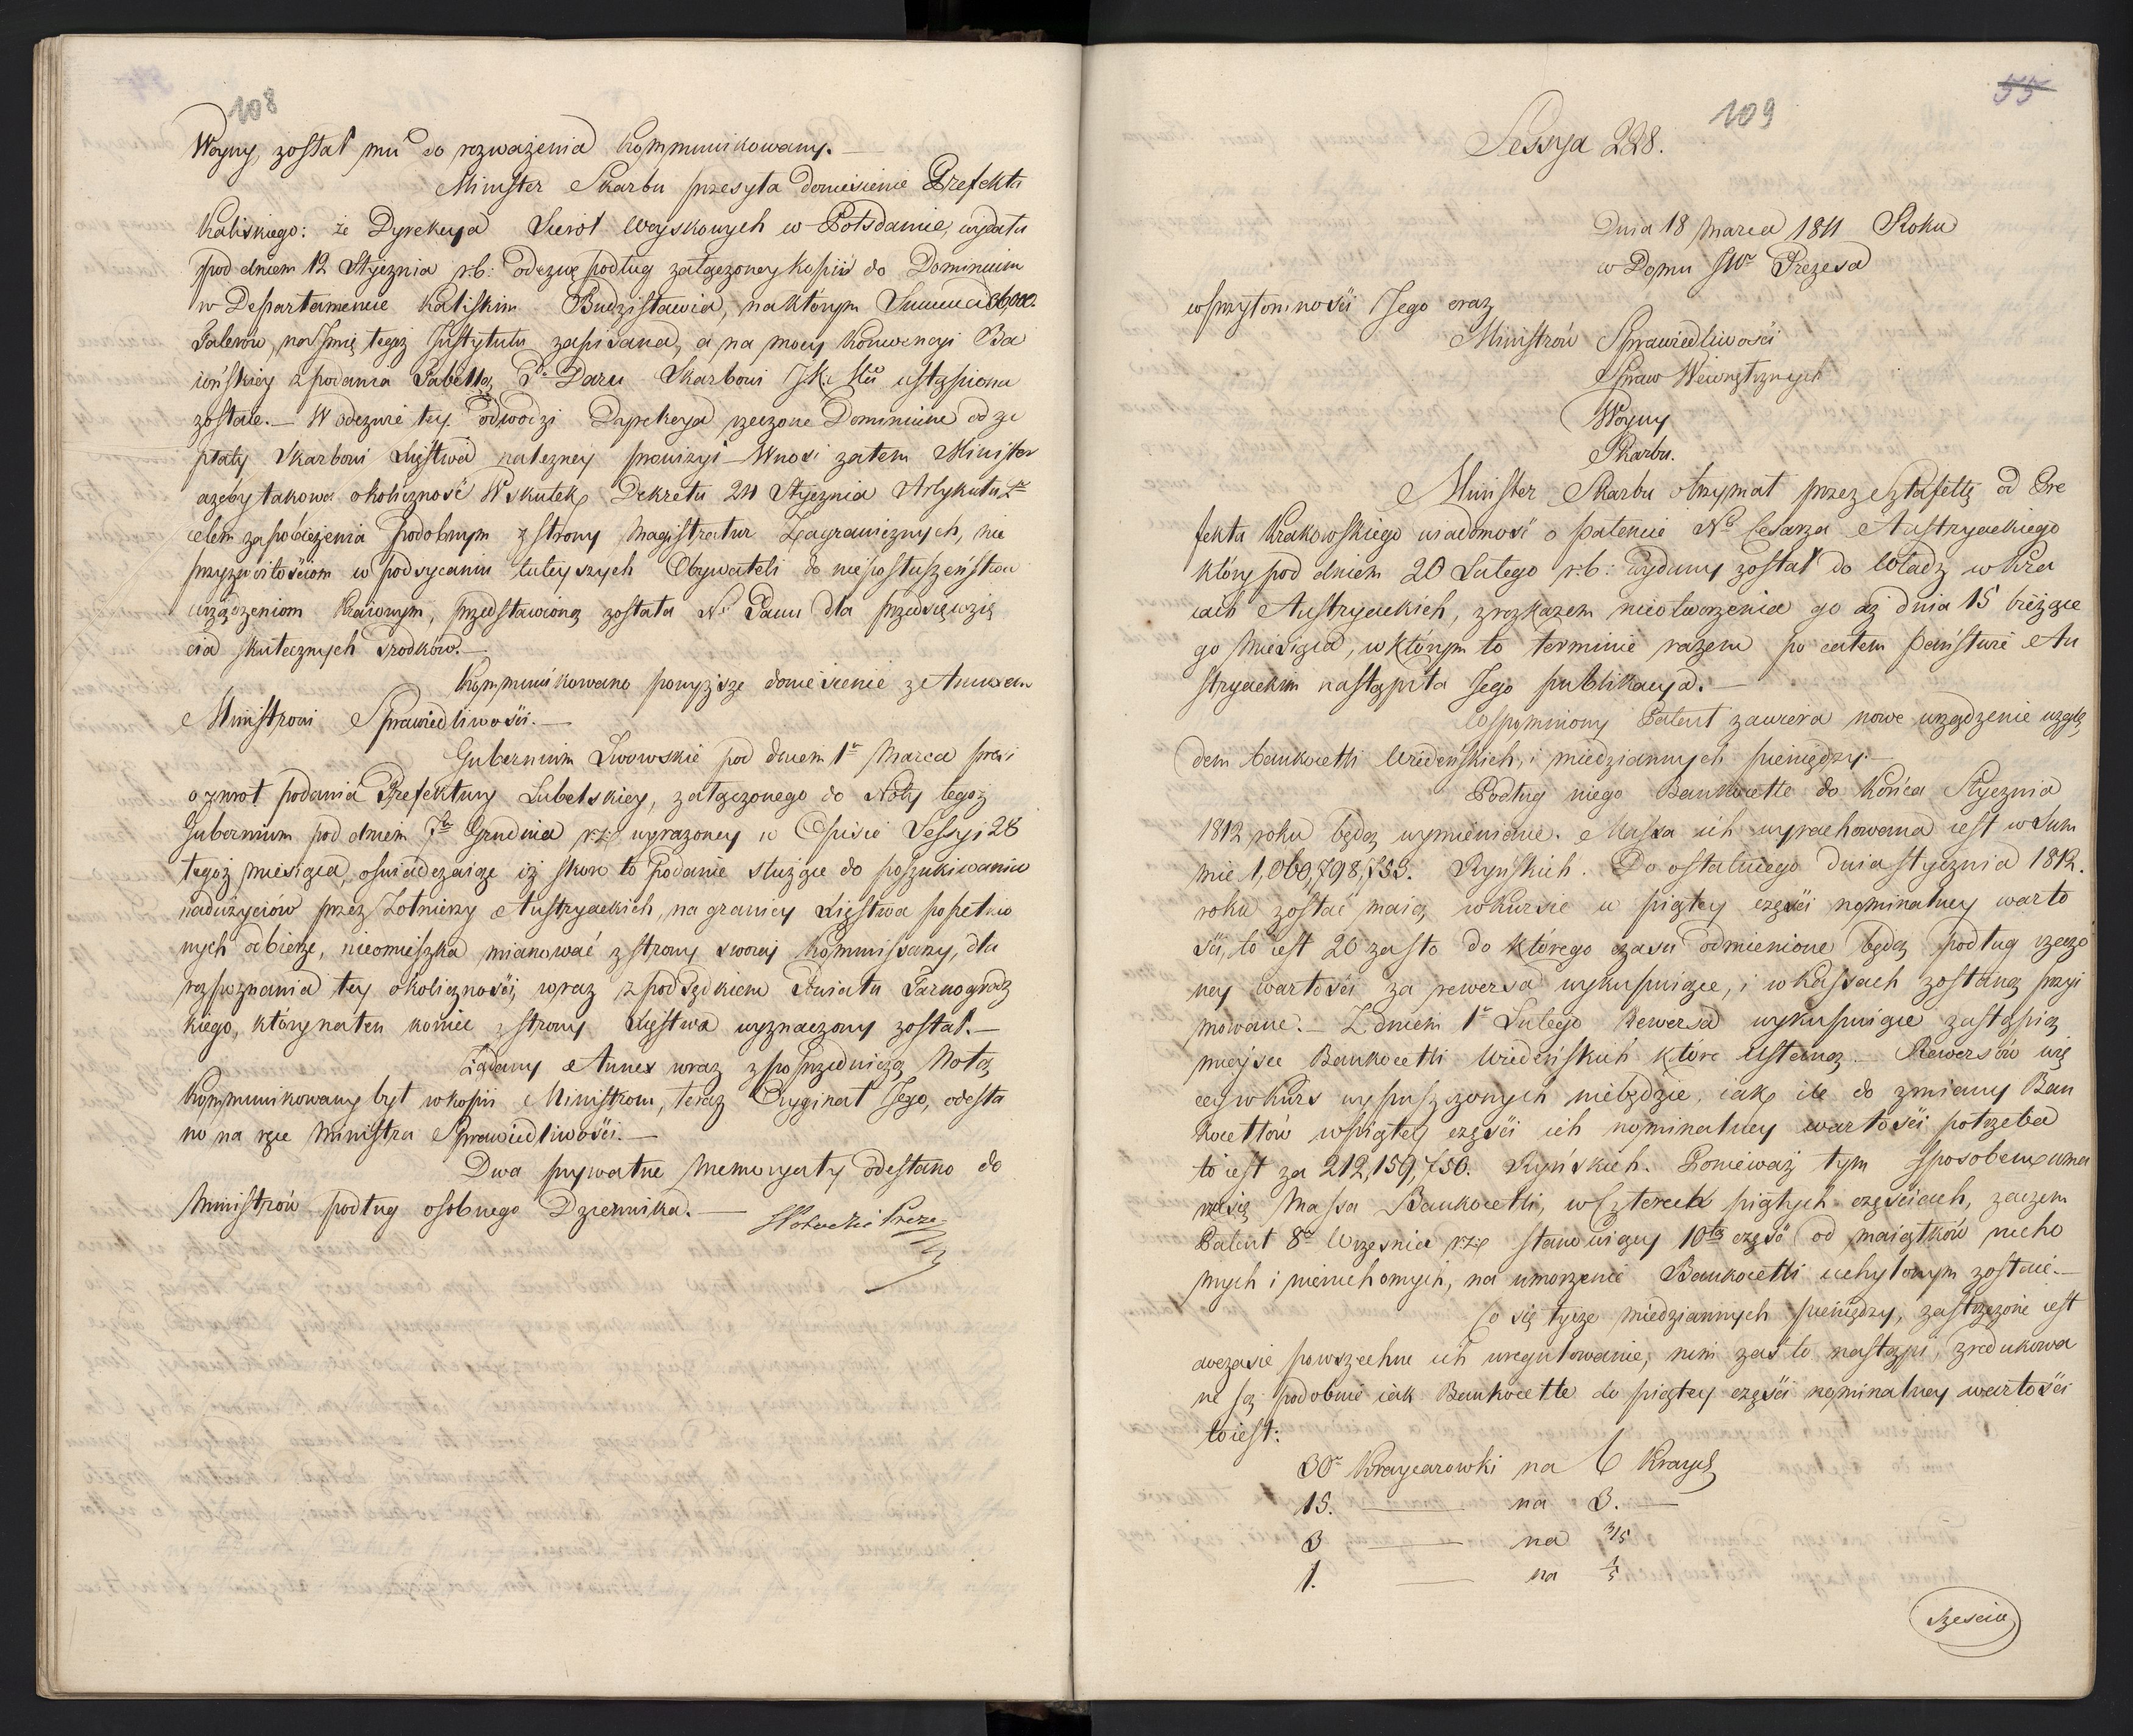 108
Woyny, został mu do rozważenia kommunikowany.—
Minister Skarbu przesyła doniesienie Prefekta
Kaliskiego: że Dyrekcya Sierot Woyskowych w Potsdamie, wydała
pod dniem 12 Stycznia r:b: odezwę podług załączoney kopii do Dominium
w Departamencie Kaliskim Budzisławia, na którym Summa
Talerów, na Jmię tegoż Jnstytutu zapisana, a na mocy Konwencyi Ba
iońskiey z podania Tabellą Pa Daru Skarbowi JK: Mci ustąpiona
została.— W odezwie tey odwodzi Dyrekcya rzeczone Dominium od za
płaty Skarbowi Xięstwa należney prowizyi — Wnosi zatem Minister
ażeby takowa okoliczność W skutek Dekretu 24 Stycznia Artykułu
celem zapobieżenia podobnym z strony Magistratur Zagranicznych, nie
przyzwoitościom w podsycaniu tuteyszych Obywateli do nieposłuszeństwa
urządzeniom Kraiowym, przedstawioną została N. Panu dla przedsięwzię
cia skutecznych srodków.—
Kommunikowano powyższe doniesienie z Annexem
Ministrowi Sprawiedliwości.—
Gubernium Lwowskie pod dniem 1o Marca prosi
o zwrot podania Prefektury Lubelskiey, załączonego do Noty tegoż
Gubernium pod dniem 7o Grudnia r:z: wyrażoney w Opisie Sessyi 28
tegoż miesiąca, oswiadczaiąc iż skoro to Podanie służące do poszukiwania
nadużyciów przez Żołnierzy Austryackich, na granicy Xięstwa popełnio
nych odbierze, nieomieszka mianować z strony swoiey Kommissarzy, dla
rozpoznania tey okoliczności, wraz z podsędkiem Powiatu Tarnogrodz
kiego, który na ten koniec z strony Xięstwa wyznaczony został.—
Żądany Annex wraz z poprzedniczą Notą
Kommunikowany był w kopii Ministrom, teraz Oryginał Jego, odesła
no na ręce Ministra Sprawiedliwości.—
Dwa prywatne Memoryały odesłano do
Ministrów podług osobnego Dziennika.—
StPotocki Preze
55
109
Sessya 228.
Dnia 18 Marca 1811 Roku
w Domu JWo Prezesa
w przytomności Jego oraz
Ministrów Sprawiedliwości
Spraw Wewnętrznych
Woyny
Skarbu.
Minister Skarbu otrzymał przez Sztafettę od Pre
fekta Krakowskiego wiadomość o patencie No Cesarza Austryackiego
który pod dniem 20 Lutego r:b: wydany został do Władz w Kra
iach Austryackich, z rozkazem nieotworzenia go aż dnia 15 bieżące
go Miesiąca, w którym to terminie razem po całem Państwie Au
stryackim nastąpiła Jego publikacya.—
Wspomniony Patent zawiera nowe urządzenie wzglę
dem bankocetli Wiedeńskich, i miedziannych pieniędzy.—
Podług niego Bankocetle do końca Stycznia
1812 roku będą wymieniane. Massa ich wyrachowana iest w Sum
mie 1,060,798,753. Ryńskich. Do ostatniego dnia stycznia 1812.
roku zostać maią w kursie w piątey części nominalney warto
ści, to iest 20 za sto do którego czasu odmienione będą podług rzeczo
ney wartości za rewersa wykupuiące, i w kassach zostaną przyi
mowane.— Z dniem 1o Lutego Rewersa wykupuiące zastąpią
mieysce Bankocetli Wiedeńskich które ustaną.— Rewersów wię
cey w kurs wypuszczonych niebędzie, iak ile do zmiany Ban
kocetlów w piątey części ich nominalney wartości potrzeba
to iest za 212,159,750. Ryńskich. Ponieważ tym sposobem uma
rza się Massa Bankocetli, w Czterech piątych częściach, zaczem
Patent 8o Wrzesnia r:z: stanowiący 10tą część od maiątków rucho
mych i nieruchomych, na umorzenie Bankocetli uchylonym zostaie.—
Co się tycze miedziannych pieniędzy, zastrzeżone iest
wczasie powszechne ich uregulowanie, nim zaś to nastąpi, zredukowa
ne są podobnie iak Bankocetle do piątey części nominalney wartości
to iest:
30o Kraycarowki na 6 Krayc
15. — na 3. —
3 — na 3/5
1. — na 1/5
Szescio